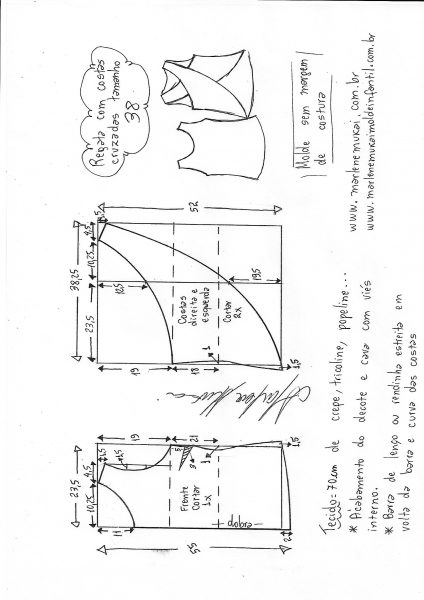 Regata com costas
cruzadas tamanho
38
Molde sem margem
de costura
www.marlenemukai.com.br
www.marlenemukaimoldeinfantil.com.br
52
4,5
10,25
38,25
23,5
12,5
19,5
Costas
direita e
esquerda
Cortar
2x
1
1,5
19
18
19
21
1,5
1,5
4,5
23,5
10,25
3
9
1
1,5
Frente
Cortar
1x
dobra
11
2
55
Tecido = 70cm de crepe, tricoline, popeline...
* Acabamento do decote e cava com viés
interno.
* Barra de lenço ou rendinha estreita em
volta da barra e curva das costas